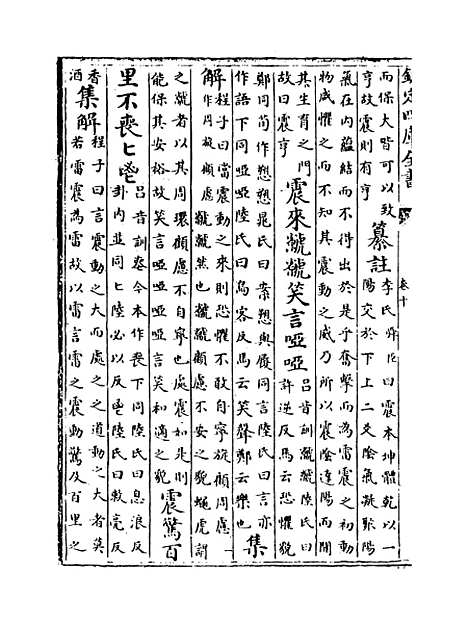 欽定四庫全書
卷十
而保大皆可以致
亨故震則有亨
纂註
李氏舜臣曰震本坤體乾以一
陽交於下上二爻陰氣凝聚陽
氣在内蘊結而不得出於是乎奮擊而為雷震之初動
物感懼之而不知其震動之威乃所以震陰達陽而開
其生育之門
故曰震亨
震來虩虩笑言啞啞
吕音訓虩虩陸氏曰
許逆反馬云恐懼貌
鄭同荀作愬愬晁氏曰案愬與履同言陸氏曰言亦
作語下同啞啞陸氏曰烏客反馬云笑聲鄭云樂也
集
解
程子曰當震動之來則恐懼不敢自寧旋顧周慮一
作周旋顧慮虩虩然也虩虩顧慮不安之貌蠅虎謂
之虩者以其周環顧慮不自寧也處震如是則
能保其安裕故笑言啞啞啞啞言笑和適之貌
震驚百
里不喪匕鬯
吕音訓喪今本作喪下同陸氏曰息浪反
卦内並同匕陸必以反鬯陸氏曰敕亮反
香
酒
集解
程子曰言震動之大而處之之道動之大者莫
若雷震為雷故以雷言雷之震動驚及百里之